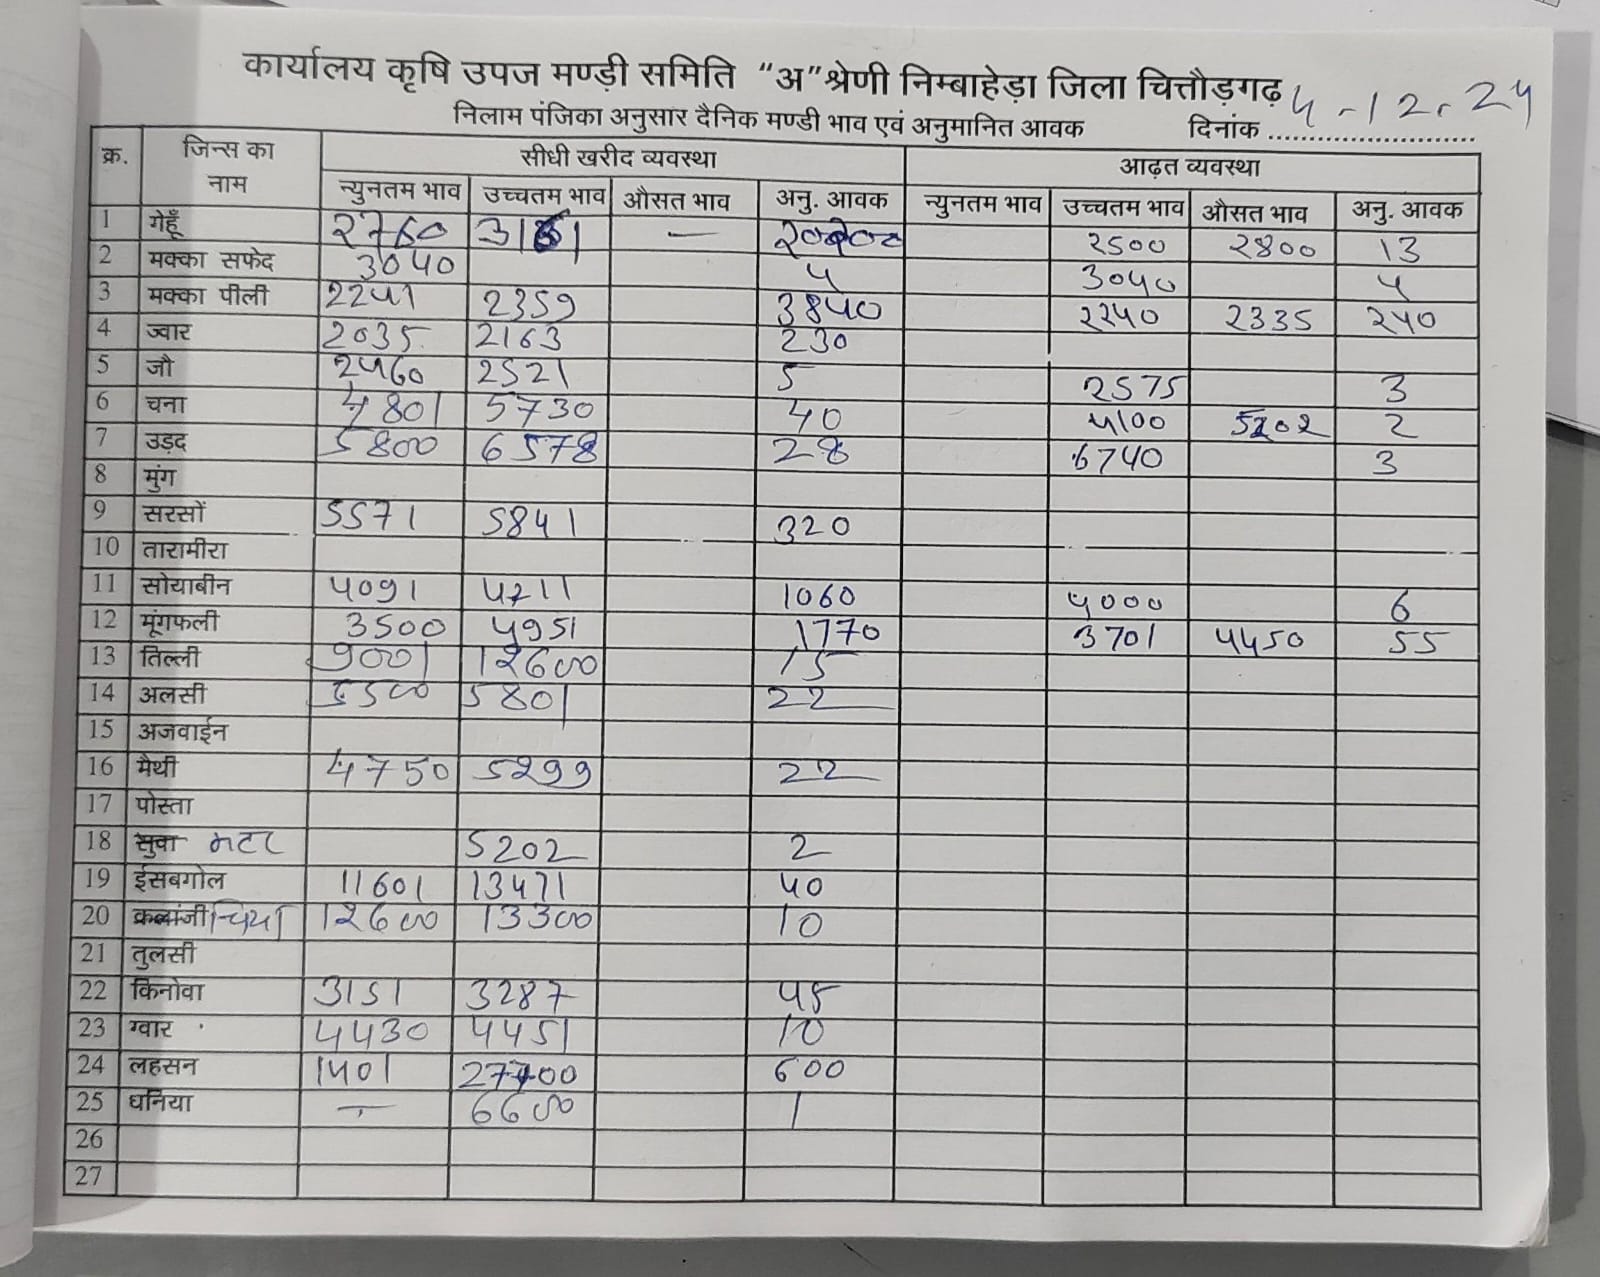 कार्यालय कृषि उपज मण्डी समिति "अ" श्रेणी निम्बाहेड़ा जिला चित्तौड़गढ़
निलाम पंजिका अनुसार दैनिक मण्डी भाव एवं अनुमानित आवक दिनांक 4-12-24
क्र. जिन्स का नाम सीधी खरीद व्यवस्था आढ़त व्यवस्था
न्युनतम भाव उच्चतम भाव औसत भाव अनु. आवक न्युनतम भाव उच्चतम भाव औसत भाव अनु. आवक
1 गेहूँ 2760 — 2500 2800 13
2 मक्का सफेद 3040 4 3040 4
3 मक्का पीली 2241 2359 3840 2240 2335 240
4 ज्वार 2035 2163 230
5 जौ 2460 2521 5 2575 3
6 चना 4801 5730 40 4100 5202 2
7 उड़द 5800 6578 28 6740 3
8 मुंग
9 सरसों 5571 5841 320
10 तारामीरा
11 सोयाबीन 4091 4211 1060 4000 6
12 मूंगफली 3500 4951 1770 3701 4450 55
13 तिल्ली 9001 12600 15
14 अलसी 5500 5801 22
15 अजवाईन
16 मैथी 4750 5299 22
17 पोस्ता
18 सुवा मटर 5202 2
19 ईसबगोल 11601 13471 40
20 कलांजी चिया 12600 13300 10
21 तुलसी
22 किनोवा 3151 3287 45
23 ग्वार 4430 4451 10
24 लहसन 1401 600
25 धनिया — 6600 1
26
27